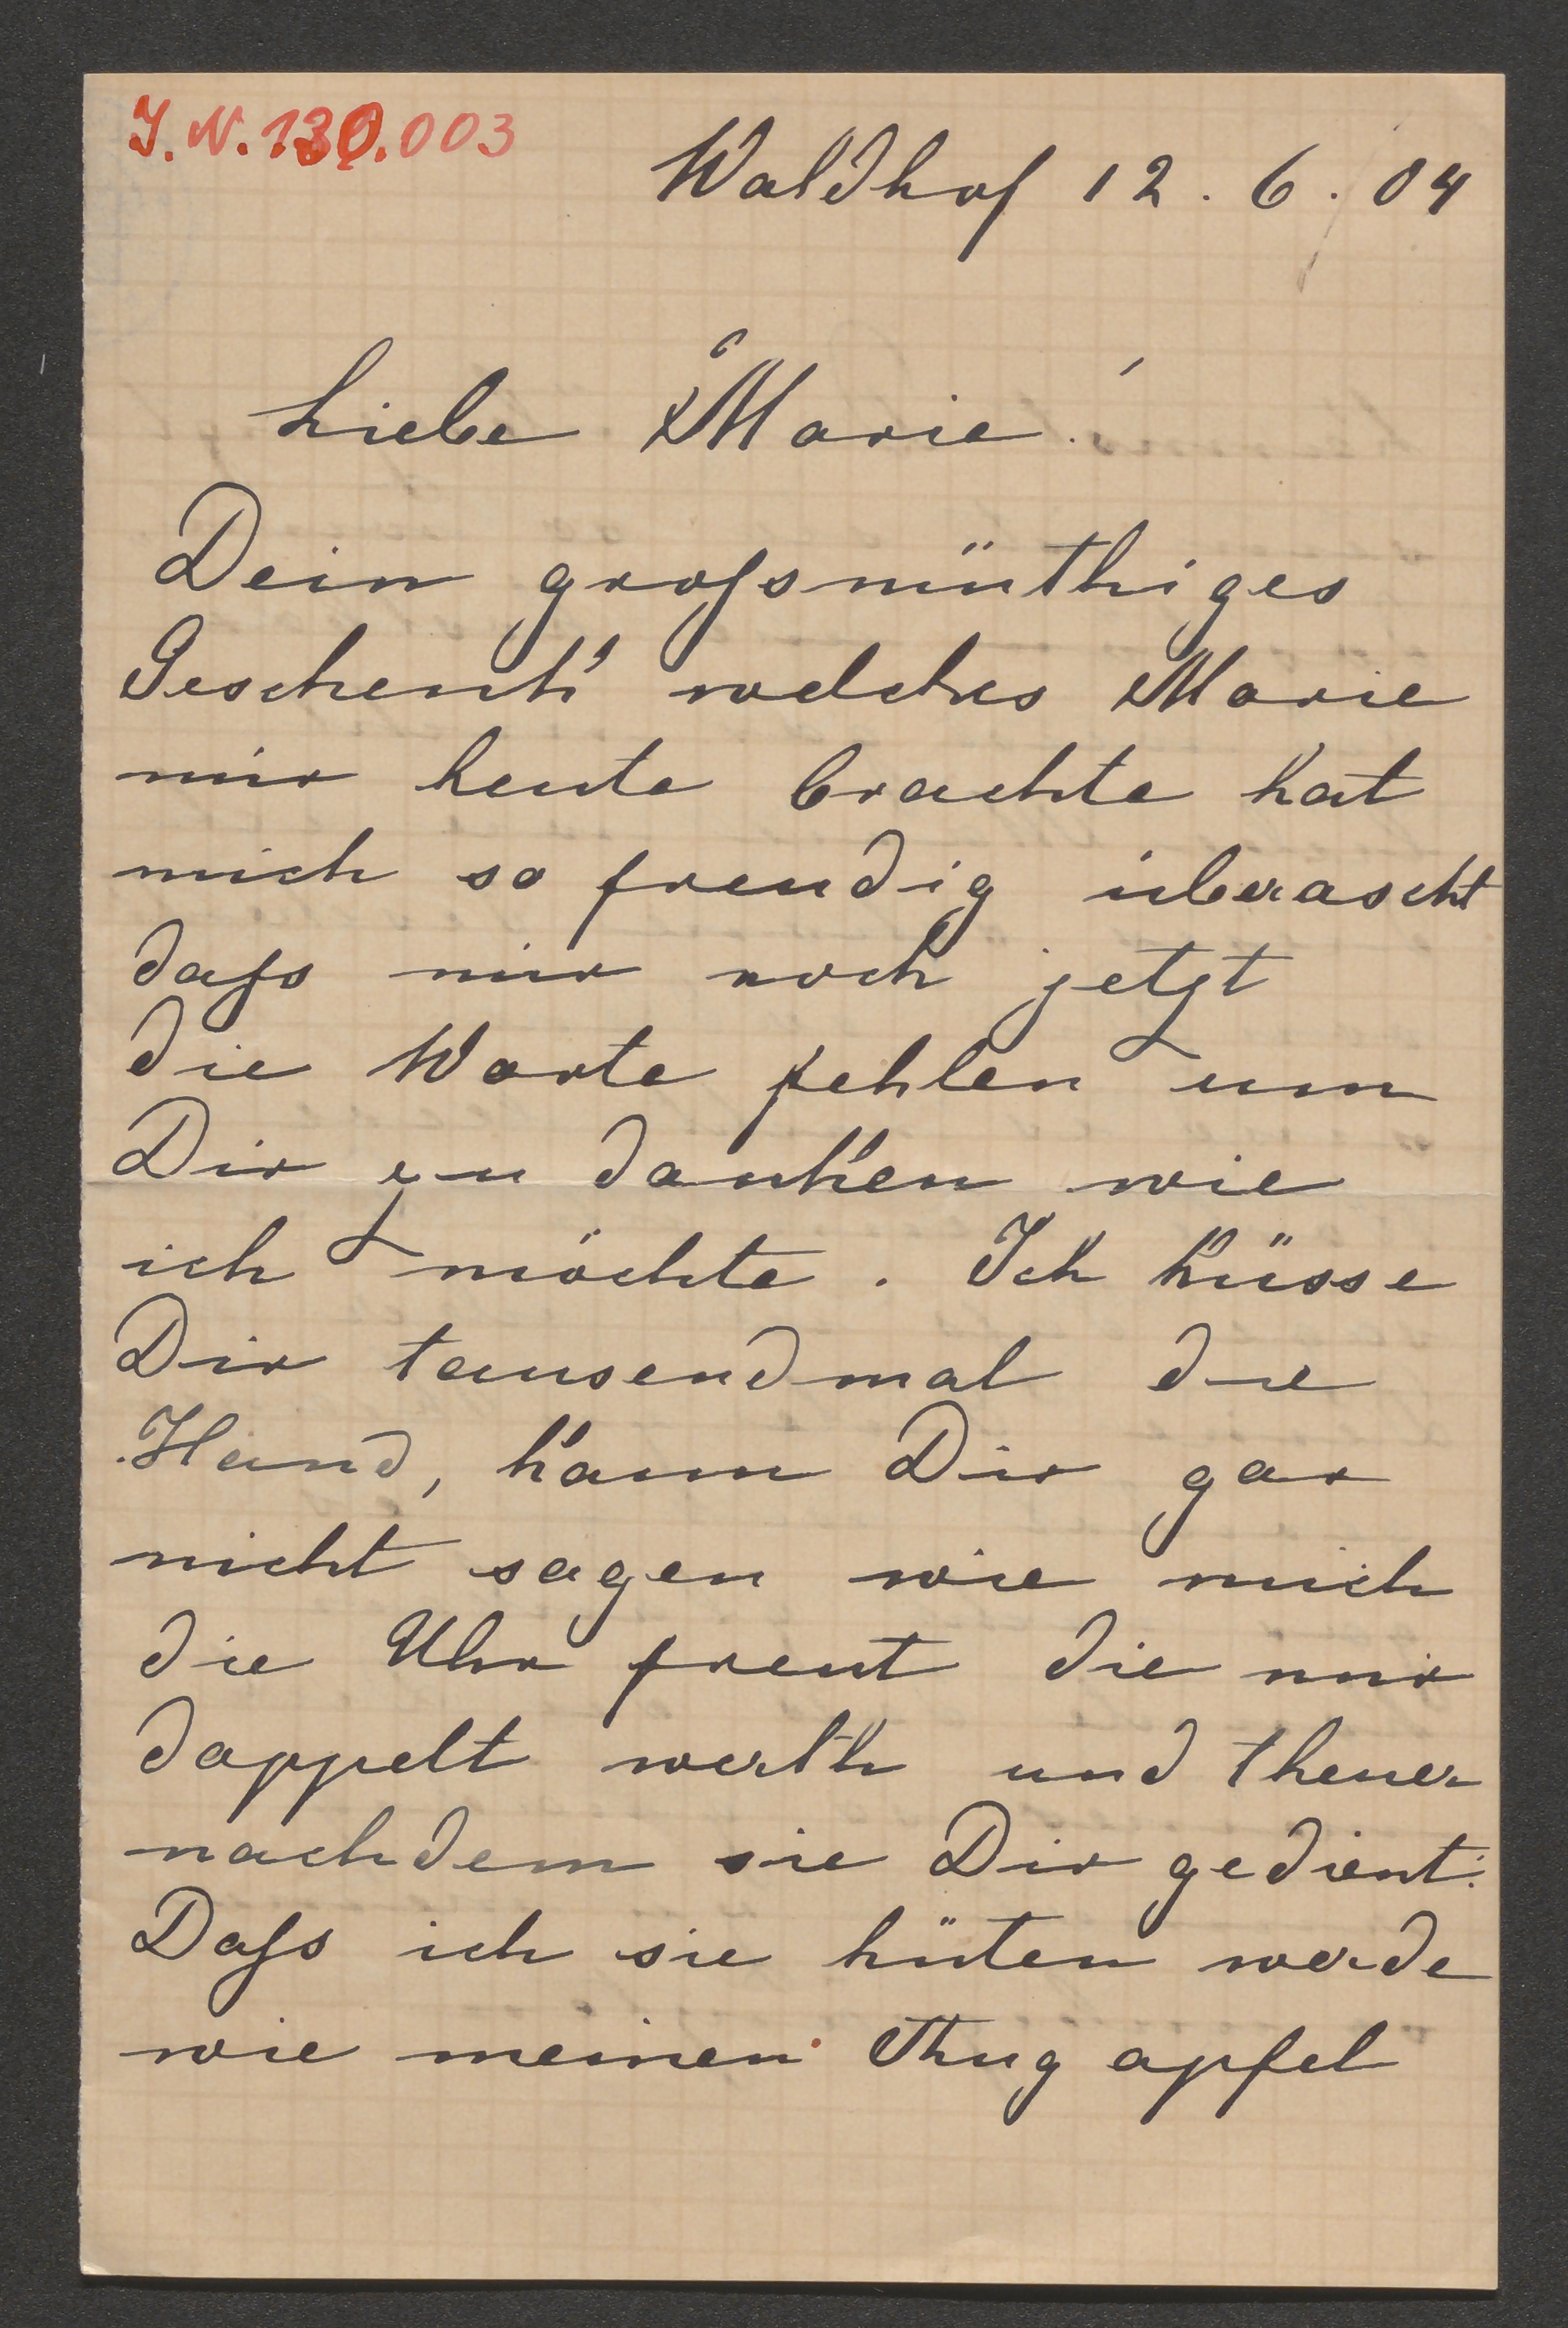 J.N.130.003
Waldhof 12. 6. 04
Liebe Marie!
Dein grossmüthiges
Geschenk welches Marie
mir heute brachte hat
mich so freudig überascht
dass mir noch jetzt
die Worte fehlen um
Dir zu danken wie
ich möchte. Ich küsse
Dir tausendmal die
Hand, kann Dir gar
nicht sagen wie mich
die Uhr freut die mir
doppelt werth und theuer
nachdem sie Dir gedient.
Dass ich sie hüten werde
wie meinen Augapfel